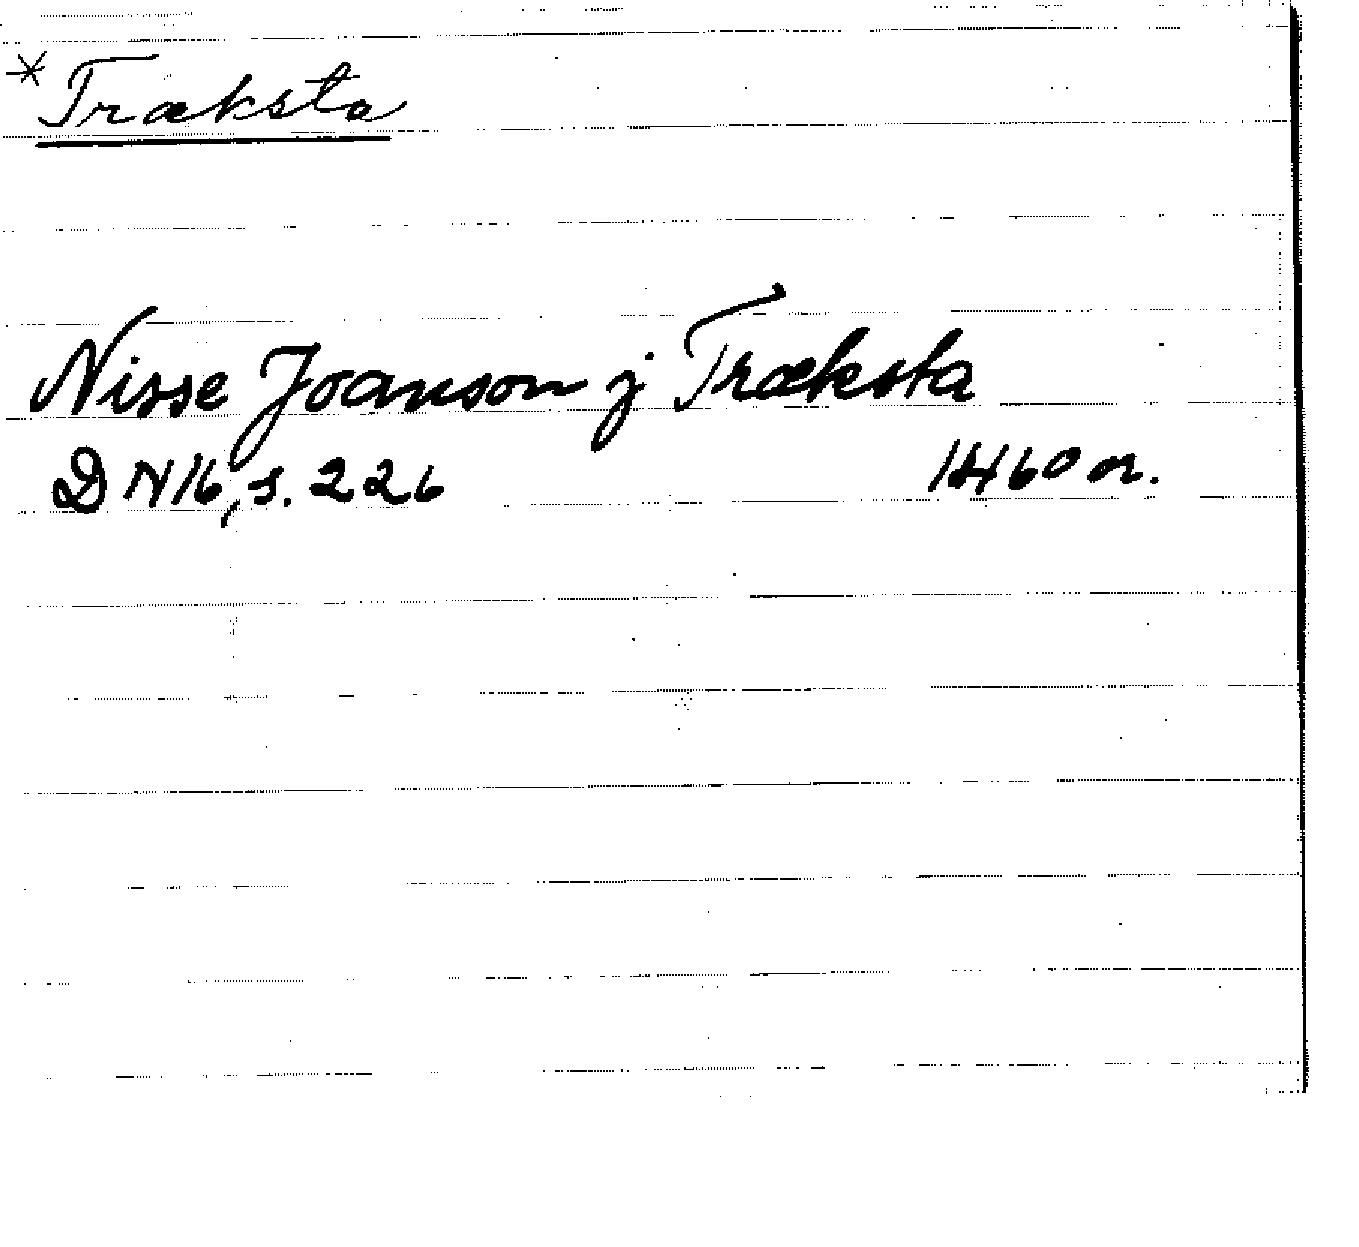 * Træksta
Nisse Joanson j Træksta
DN 16, s. 226 1460 or.